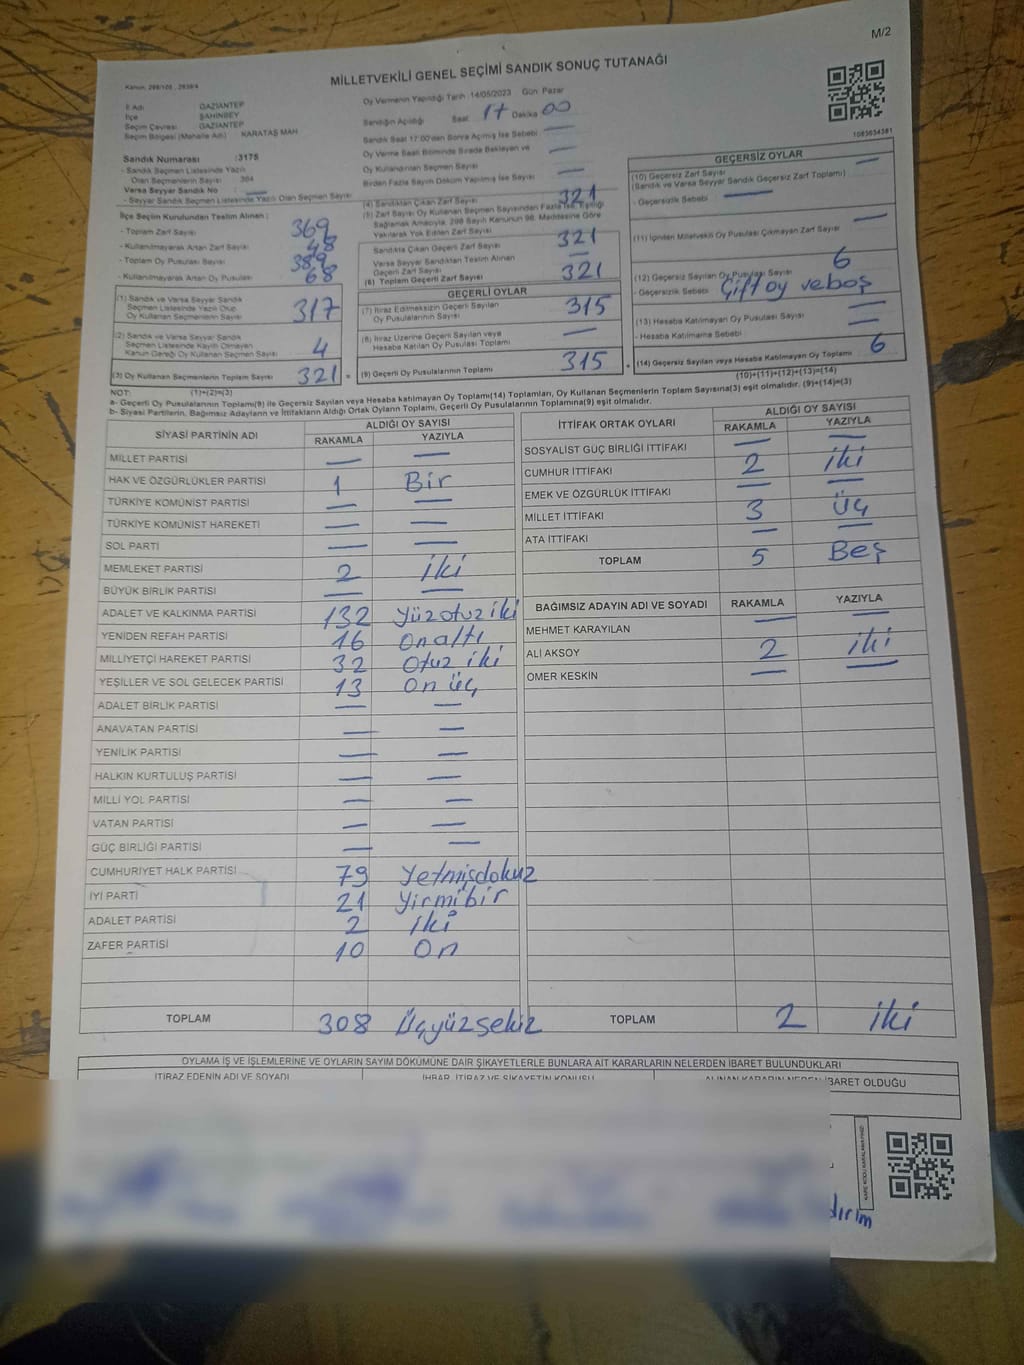 M/2
MİLLETVEKİLİ GENEL SEÇİMİ SANDIK SONUÇ TUTANAĞI
İl Adı GAZİANTEP
İlçe ŞAHİNBEY
Seçim Çevresi GAZİANTEP
Seçim Bölgesi (Mahalle Adı) KARATAŞ MAH
Sandık Numarası :3175
- Sandık Seçmen Listesinde Yazılı
Olan Seçmenlerin Sayısı
Varsa Seyyar Sandık No : —
- Seyyar Seçmen Listesinde Yazılı Olan Seçmen Sayısı
İlçe Seçim Kurulundan Teslim Alınan ;
- Toplam Zarf Sayısı 369
- Kullanılmayarak Artan Zarf Sayısı 48
- Toplam Oy Pusulası Sayısı 389
- Kullanılmayarak Artan Oy Pusulası 68
(1) Sandık ve Varsa Seyyar Sandık
Seçmen Listesinde Yazılı Olup
Oy Kullanan Seçmenlerin Sayısı 317
(2) Sandık ve Varsa Seyyar Sandık
Seçmen Listesinde Kayıtlı Olmayan
Kanun Gereği Oy Kullanan Seçmen Sayısı 4
(3) Oy Kullanan Seçmenlerin Toplam Sayısı 321
(1)+(2)=(3)
Oy Vermenin Yapıldığı Tarih :14/05/2023 Gün Pazar
Sandığın Açıldığı Saat 17 Dakika 00
Sandık Saat 17:00'den Sonra Açılmış İse Sebebi —
Oy Verme Saati Bitiminde Sırada Bekleyen ve
Oy Kullandırılan Seçmen Sayısı —
Birden Fazla Sayım Döküm Yapılmış İse Sayısı —
(4) Sandıktan Çıkan Zarf Sayısı 321
(5) Zarf Sayısı Oy Kullanan Seçmen Sayısından Fazla İse, Eşitliği
Sağlamak Amacıyla, 298 Sayılı Kanunun 98. Maddesine Göre
Yakılarak Yok Edilen Zarf Sayısı —
Sandıkta Çıkan Geçerli Zarf Sayısı 321
Varsa Seyyar Sandıktan Teslim Alınan
Geçerli Zarf Sayısı —
(6) Toplam Geçerli Zarf Sayısı 321
GEÇERLİ OYLAR
(7) İtiraz Edilmeksizin Geçerli Sayılan
Oy Pusulalarının Sayısı 315
(8) İtiraz Üzerine Geçerli Sayılan veya
Hesaba Katılan Oy Pusulası Toplamı —
(9) Geçerli Oy Pusulalarının Toplamı 315
1083634381
GEÇERSİZ OYLAR
(10) Geçersiz Zarf Sayısı —
(Sandık ve Varsa Seyyar Sandık Geçersiz Zarf Toplamı)
- Geçersizlik Sebebi : —
(11) İçinden Milletvekili Oy Pusulası Çıkmayan Zarf Sayısı —
(12) Geçersiz Sayılan Oy Pusulası Sayısı 6
- Geçersizlik Sebebi : Çift oy ve boş
(13) Hesaba Katılmayan Oy Pusulası Sayısı —
- Hesaba Katılmama Sebebi : —
(14) Geçersiz Sayılan veya Hesaba Katılmayan Oy Toplamı 6
(10)+(11)+(12)+(13)=(14)
NOT:
a- Geçerli Oy Pusulalarının Toplamı(9) ile Geçersiz Sayılan veya Hesaba katılmayan Oy Toplamı(14) Toplamları, Oy Kullanan Seçmenlerin Toplam Sayısına(3) eşit olmalıdır. (9)+(14)=(3)
b- Siyasi Partilerin, Bağımsız Adayların ve İttifakların Aldığı Ortak Oyların Toplamı, Geçerli Oy Pusulalarının Toplamına(9) eşit olmalıdır.
SİYASİ PARTİNİN ADI ALDIĞI OY SAYISI
RAKAMLA YAZIYLA
MİLLET PARTİSİ — —
HAK VE ÖZGÜRLÜKLER PARTİSİ 1 Bir
TÜRKİYE KOMÜNİST PARTİSİ — —
TÜRKİYE KOMÜNİST HAREKETİ — —
SOL PARTİ — —
MEMLEKET PARTİSİ 2 iki
BÜYÜK BİRLİK PARTİSİ — —
ADALET VE KALKINMA PARTİSİ 132 Yüzotuziki
YENİDEN REFAH PARTİSİ 16 Onaltı
MİLLİYETÇİ HAREKET PARTİSİ 32 Otuz iki
YEŞİLLER VE SOL GELECEK PARTİSİ 13 On üç
ADALET BİRLİK PARTİSİ — —
ANAVATAN PARTİSİ — —
YENİLİK PARTİSİ — —
HALKIN KURTULUŞ PARTİSİ — —
MİLLİ YOL PARTİSİ — —
VATAN PARTİSİ — —
GÜÇ BİRLİĞİ PARTİSİ — —
CUMHURİYET HALK PARTİSİ 79 Yetmişdokuz
İYİ PARTİ 21 Yirmibir
ADALET PARTİSİ 2 iki
ZAFER PARTİSİ 10 On
TOPLAM 308 Üçyüzsekiz
İTTİFAK ORTAK OYLARI ALDIĞI OY SAYISI
RAKAMLA YAZIYLA
SOSYALİST GÜÇ BİRLİĞİ İTTİFAKI — —
CUMHUR İTTİFAKI 2 iki
EMEK VE ÖZGÜRLÜK İTTİFAKI — —
MİLLET İTTİFAKI 3 Üç
ATA İTTİFAKI — —
TOPLAM 5 Beş
BAĞIMSIZ ADAYIN ADI VE SOYADI RAKAMLA YAZIYLA
MEHMET KARAYILAN — —
ALİ AKSOY 2 iki
ÖMER KESKİN — —
TOPLAM 2 iki
OYLAMA İŞ VE İŞLEMLERİNE VE OYLARIN SAYIM DÖKÜMÜNE DAİR ŞİKAYETLERLE BUNLARA AİT KARARLARIN NELERDEN İBARET BULUNDUKLARI
İTİRAZ EDENİN ADI VE SOYADI İHBAR, İTİRAZ VE ŞİKAYETİN KONUSU ALINAN KARARIN NEDEN İBARET OLDUĞU
dırım